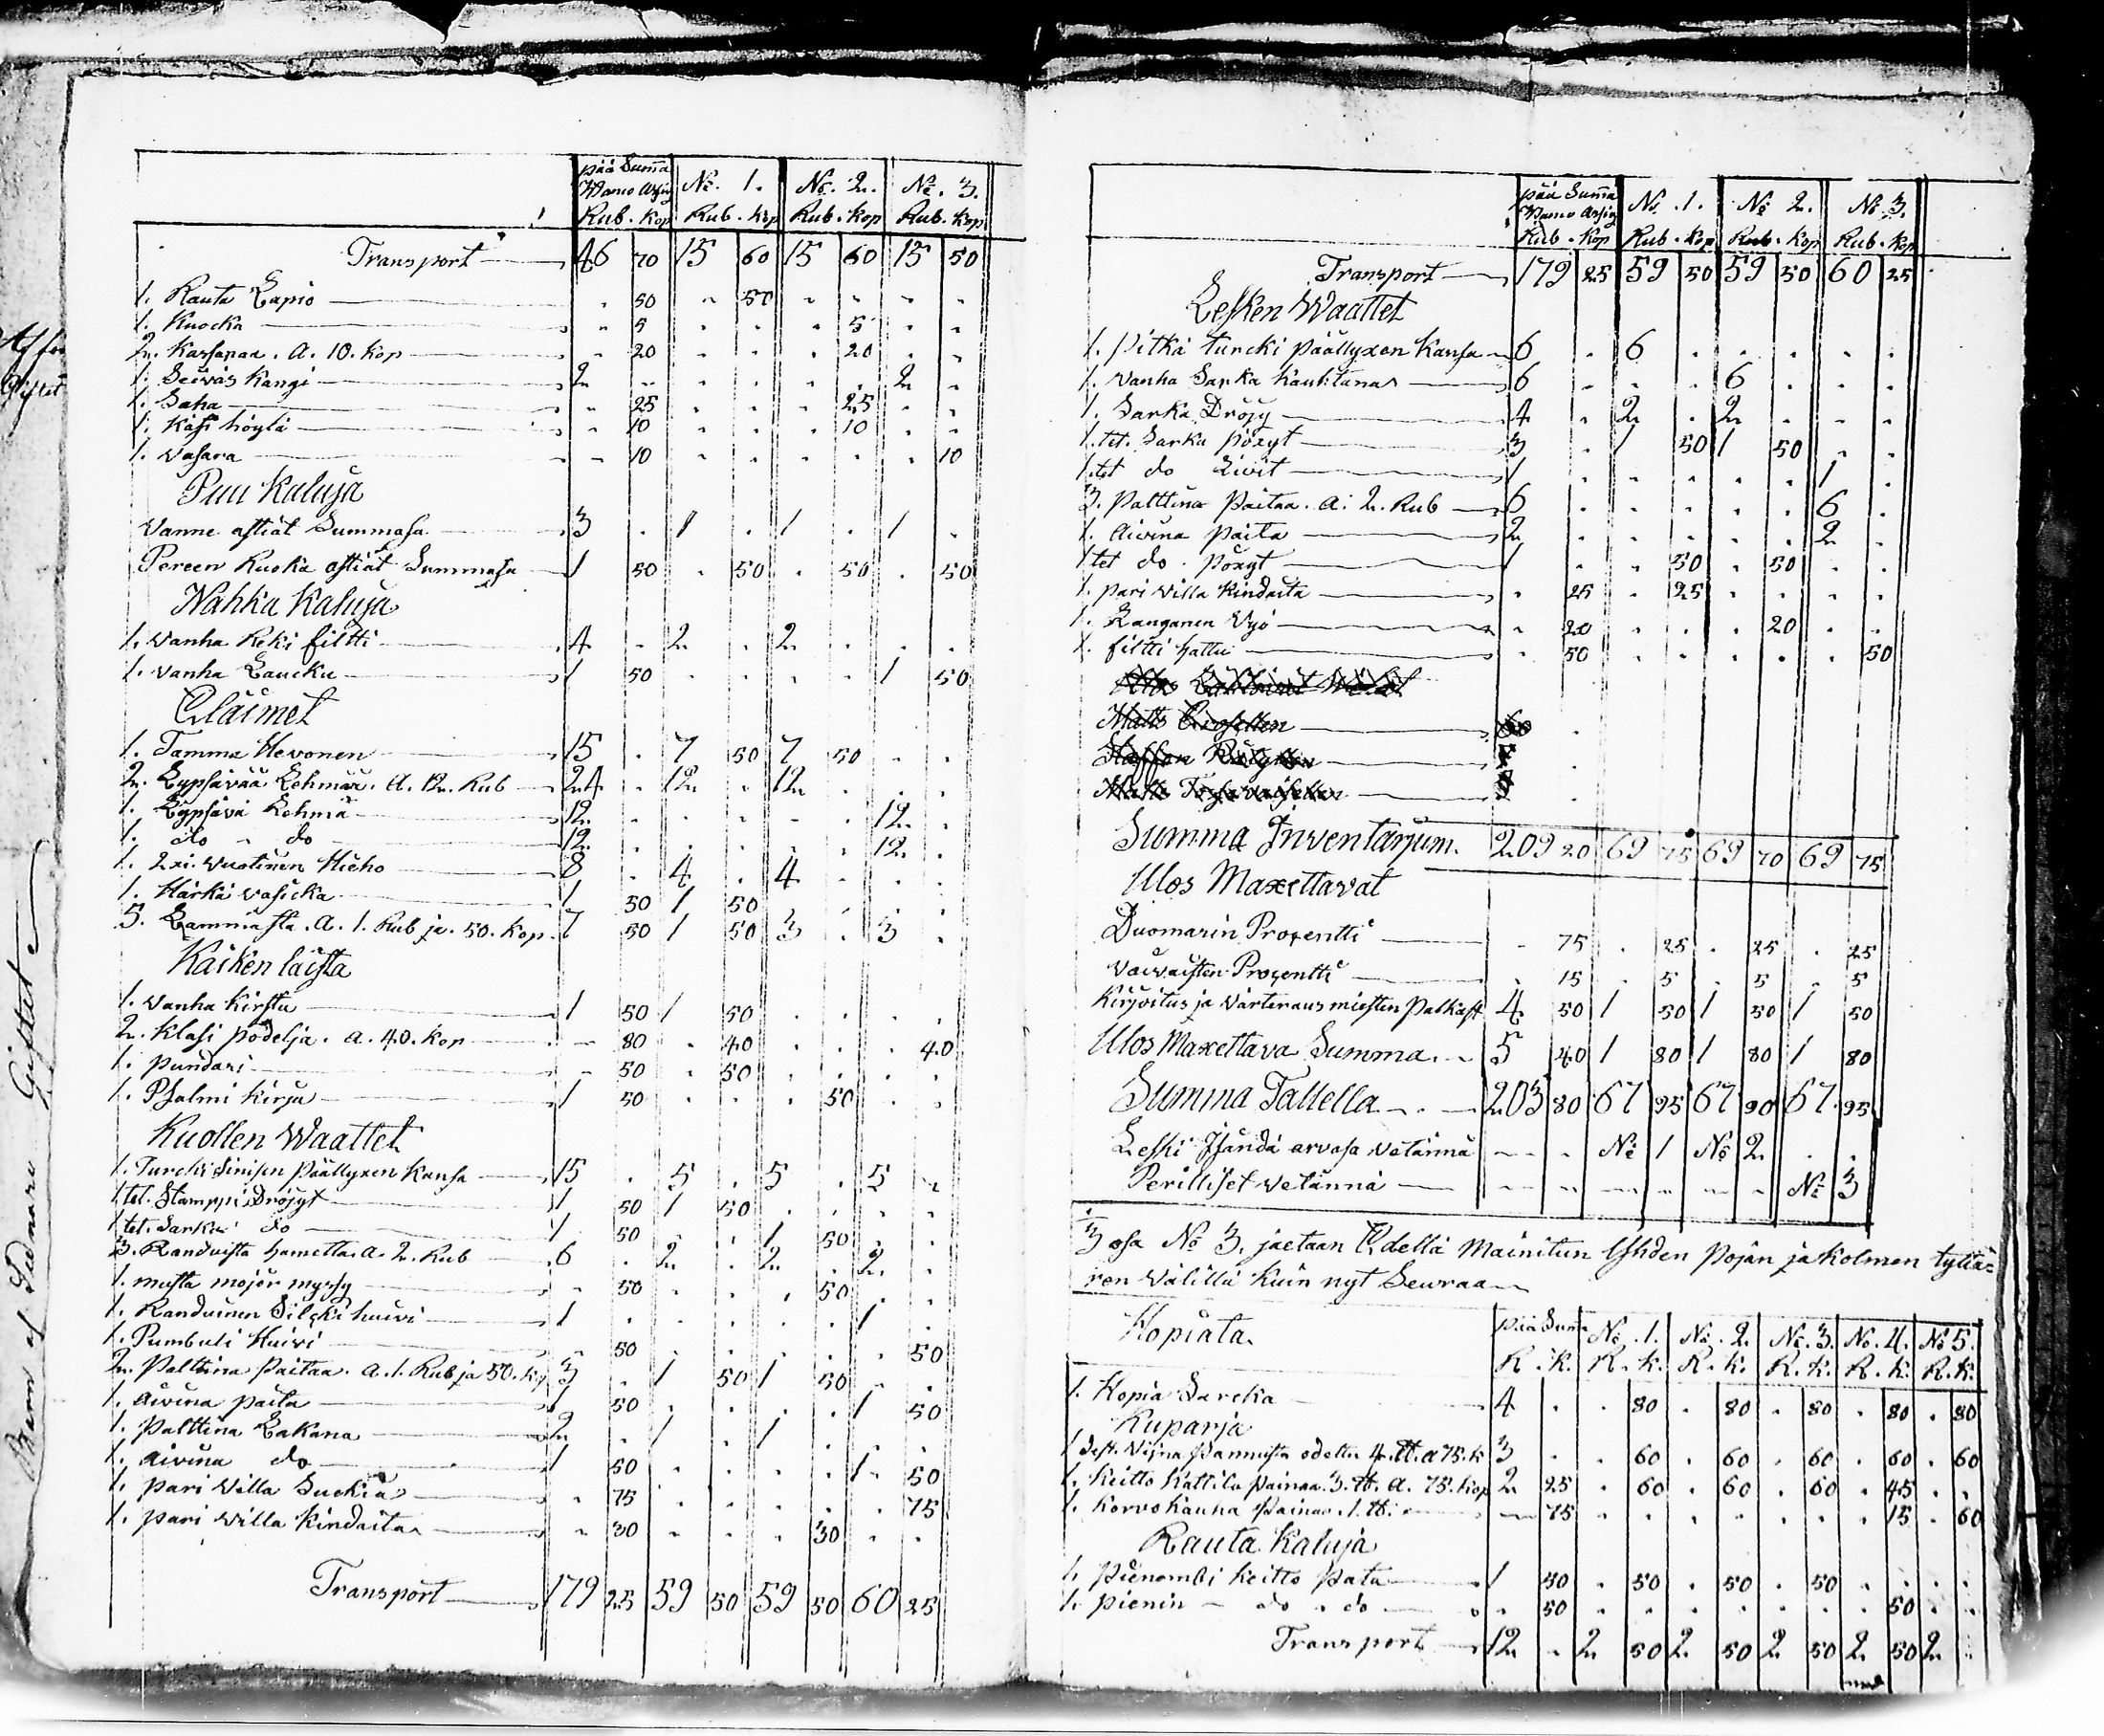 pää Summa
Warvo Arfiy No. 1. No. 2. No. 3.
Rub. kop Rub. kop Rub. kop Rub. kop
Transport 46 70 15 60 15 60 15 50
1. Rauta Lapio . 50 . 50 . . . .
1. Kuocka . 5 . . . 5 . .
2. Karsapaa. A. 10. kop . 20 . . . 20 . .
1. Seiväs Kangi 2 . . . . . 2 .
1. Saha . 25 . . . 25 . .
1. Käsi höylä . 10 . . . 10 . .
1. Vasara . 10 . . . . . 10
Puu Kaluja
Vanne astiat Summasa 3 . 1 . 1 . 1 .
Pereen Ruoka astiat Summasa 1 50 . 50 . 50 . 50
Nahka Kaluja
1. Vanha Reki filtti 4 . 2 . 2 . . .
1. Vanha Laucku 1 50 . . . . 1 50
Eläimet
1. Tamma Hevonen 15 . 7 50 7 50 . .
2. Lypsävää Lehmää. A. 12. Rub 24 . 12 . 12 . . .
1. Lypsävä Lehmä 12 . . . . . 12 .
1. do - do 12 . . . . . 12 .
1. 2xi. Vuotinen Hieho 8 . 4 . 4 . . .
1. Härkä Vasicka 1 50 1 50 . . . .
5. Lammasta. A. 1. Rub ja. 50. kop. 7 50 1 50 3 . 3 .
Kaiken laista
1. Vanha Kirstu 1 50 1 50 . . . .
2. Klasi podelja. a. 40. kop . 80 . 40 . . . 40
1. Pundari . 50 . 50 . . . .
1. Psalmi Kirja 1 50 . . . 50 . .
Kuollen Waattet
1. Turcki Sinisen Päällyxen Kansa 15 . 5 . 5 . 5 .
1 tet. Stamppi Dröjyt 1 50 1 50 . . . .
1 tet. Sarka do 1 50 . . 1 50 . .
3. Randuista hametta. a. 2. Rub 6 . 2 . 2 . 2 .
1. musta mojör myssy . 50 . . . 50 . .
1. Randuinen Silcki huivi 1 . . . . . 1 .
1. Pumbuli Huivi . 50 . . . . . 50
2. Palttina Paitaa. a. 1. Rub ja 50. kp 3 . 1 50 1 50 . .
1. Aivina paita 1 50 . . . . 1 50
1. Palttina Lakana 2 . 1 . 1 . . .
1. Aivina do 1 50 . . . . 1 50
1. pari Villa Suckia . 75 . . . . . 75
1. pari Villa Kindaita . 30 . . . 30 . .
Transport 179 25 59 50 59 50 60 25
pää Summa
Warvo Arfiy No. 1. No 2. No 3.
Rub. kop Rub. kop Rub. kop Rub. kop
Transport 179 25 59 50 59 50 60 25
Lesken Waattet
1. Pitkä turcki Päällyxen Kansa 6 . 6 . . . . .
1. Vanha Sarka Kauhtana 6 . . . 6 . . .
1. Sarka Dröjy 4 . 2 . 2 . . .
1. tet. Sarka pöxyt 3 . 1 50 1 50 . .
1. tet do Livit 1 . . . . . 1 .
3. Palttina Paitaa. a. 2. Rub 6 . . . . . 6 .
1. Aivina paita 2 . . . . . 2 .
1 tet do. pöxyt 1 . . 50 . 50 . .
1. pari Villa Kindaita . 25 . 25 . . . .
1. Kanganen Vyö . 20 . . . 20 . .
1. filtti hattu . 50 . . . . . 50
Summa Inventarjum. 209 20 69 75 69 70 69 75
Ulos Maxettavat
Duomarin Proxentti . 75 . 25 . 25 . 25
Vaivaisten Proxentti . 15 . 5 . 5 . 5
Kirjoitus ja Värteraus miesten Palkast 4 50 1 50 1 50 1 50
Ulos Maxettava Summa. 5 40 1 80 1 80 1 80
Summa Tallella 203 80 67 95 67 90 67. 95
Leski Isändä arvasa Vetännä No 1 No 2 . .
Perilliset Vetännä No 3
3 osa No 3. jaetaan Edellä Mainitun Yhden Pojan ja Kolmen tyttä=
ren Välillä Kuin nyt Seuraa
Hopiata. pää Sum No. 1. No. 2. No. 3. No. 4. No 5.
R. k. R. k. R. k. R. k. R. k. R. k.
1. Hopia Sarcka 4 . . 80 . 80 . 80 . 80 . 80
Kuparja
1 Dest. Vijna Pannuista odettu 4. lb. a 75. k 3 . . 60 . 60 . 60 . 60 . 60
1. Keitto Kattila Painaa. 3. lb. a. 75. kop 2 25 . 60 . 60 . 60 . 45 . .
1. Korvo kauha Painaa. 1. lb. . 75 . . . . . . . 15 . 60
Rauta Kaluja
1. Pienembi Keitto Pata 1 50 . 50 . 50 . 50 . . . .
1. pienin - do . do . 50 . . . . . . . 50 . .
Transport 12 . 2 50 2 50 2 50 2 50 2 .